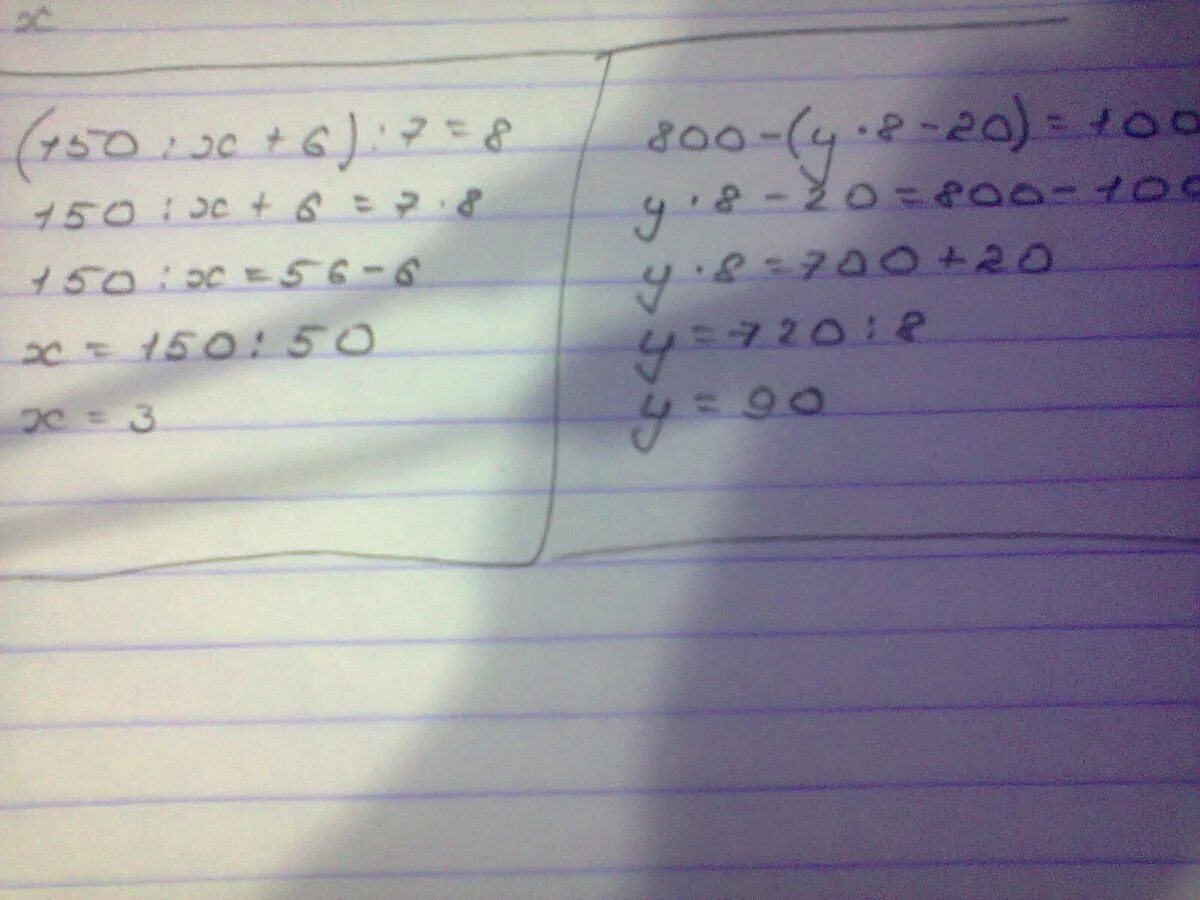 x
(150 : x + 6) : 7 = 8
150 : x + 6 = 7 · 8
150 : x = 56 - 6
x = 150 : 50
x = 3
800 - (y · 8 - 20) = 100
y · 8 - 20 = 800 - 100
y · 8 = 700 + 20
y = 720 : 8
y = 90